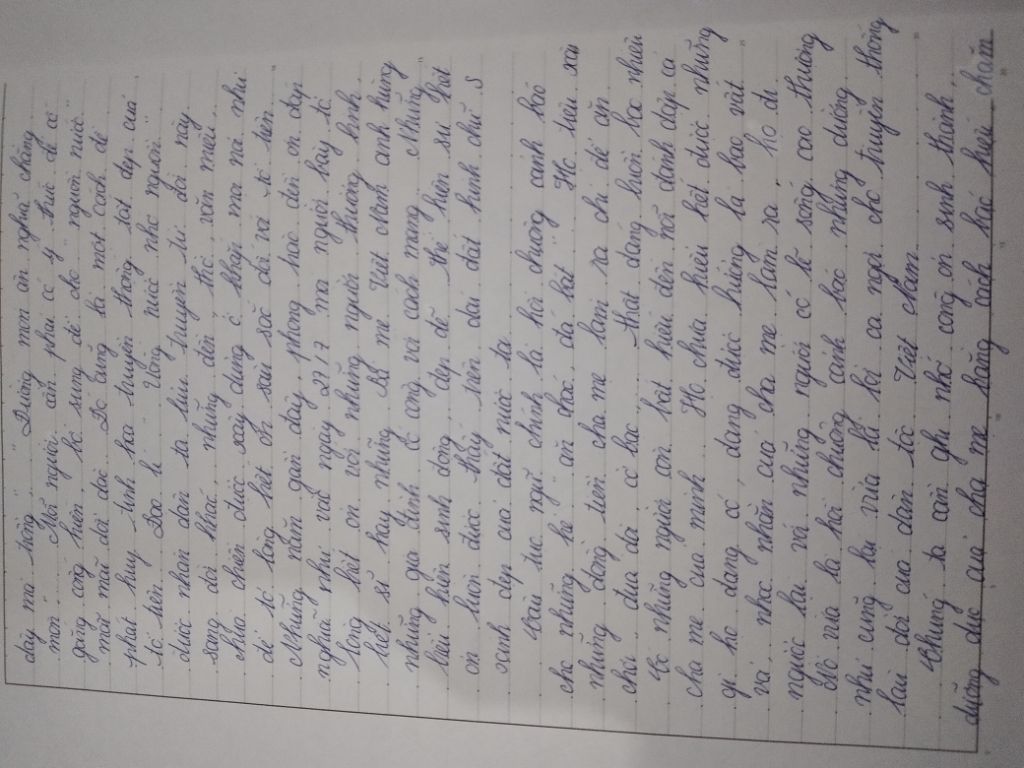 dây mà trồng", "Đường mòn ân nghĩa chẳng
mòn". Mỗi người cần phải có ý thức để cố
gắng cống hiến, bổ sung để cho "người nước"
mãi dồi dào. Đó cũng là một cách để
phát huy tinh hoa truyền thống tốt đẹp của
tổ tiên. Đạo lí Uống nước nhớ nguồn
được nhân dân ta lưu truyền từ đời này
sang đời khác, những đền thờ, văn miếu,
chùa chiền được xây dựng ở khắp mọi nơi như
để tỏ lòng biết ơn sâu sắc đối với tổ tiên.
Những năm gần đây, phong trào đền ơn đáp
nghĩa như vào ngày 27/7 mọi người bày tỏ
lòng biết ơn với những người thương binh
liệt sĩ hay những Bà mẹ Việt Nam anh hùng
những gia đình có công với cách mạng. Những
biểu hiện sinh động, đẹp đẽ thể hiện sự biết
ơn luôn được thấy trên dải đất hình chữ S
xanh đẹp của đất nước ta.
Câu tục ngữ chính là hồi chuông cảnh báo
cho những kẻ ăn cháo đá bát. Họ tiêu xài
những đồng tiền cha mẹ làm ra chỉ để ăn
chơi, đua đòi, cờ bạc... thật đáng buồn bao nhiêu
Có những người còn bất hiếu đến nỗi đánh đập cả
cha mẹ của mình. Họ chưa hiểu hết được những
gì họ đang có, đang được hưởng là bao vất
vả, nhọc nhằn của cha mẹ làm ra. Họ đi
ngược lại với những người có lẽ sống cao thượng
Đó vừa là hồi chuông cảnh báo những đường
như cũng lại vừa là lời ca ngợi cho truyền thống
lâu đời của dân tộc Việt Nam.
Chúng ta cần ghi nhớ công ơn sinh thành,
dưỡng dục của cha mẹ bằng cách bác hiếu chăm